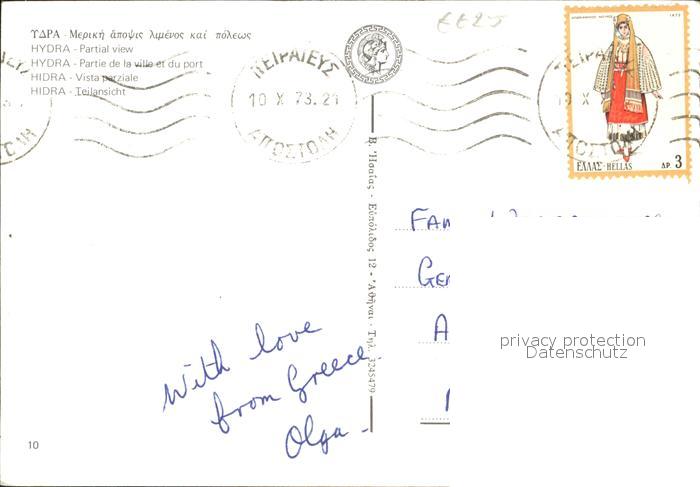 ΥΔΡΑ - Μερική ἄποψις λιμένος καί πόλεως
HYDRA - Partial view
HYDRA - Partie de la ville et du port
HIDRA - Vista parziale
HIDRA - Teilansicht
ΠΕΙΡΑΙΕΥΣ
10 X 73.21
ΑΠΟΣΤΟΛΗ
1973
ΕΛΛΑΣ-HELLAS
ΔΡ. 3
Β. Ἡσαΐας - Εὐπόλιδος 12 - Ἀθῆναι - Τηλ. 3245479
With love
from Greece -
Olga -
privacy protection
Datenschutz
10